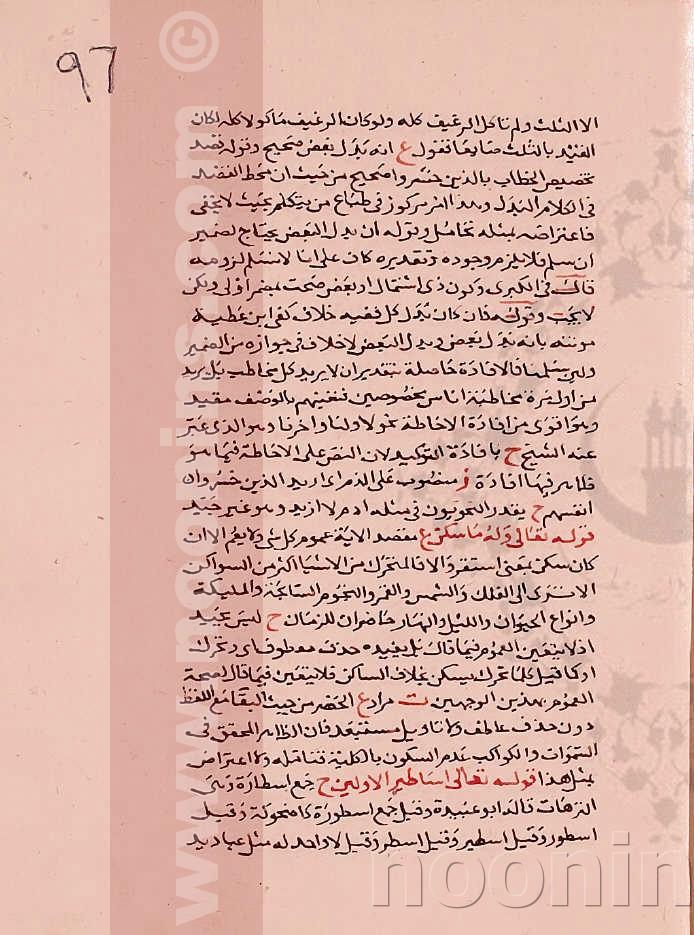 97
الا الثلث ولم تاكل الرغيف كله ولو كان الرغيف ماكولا كله لكان
القيد بالثلث ضايعا فنقول ع انه بدل بعض صحيح وقوله نصد
تخصيص الخطاب بالذين خسروا صحيح من حيث ان محط القصد
في الكلام البدل وهذا امر مركوز في طباع من يتكلم بحيث لا يخفى
فاعتراضه بمثله تحامل وقوله ان بدل البعض يحتاج لضمير
ان سلم فلا يلزم وجوده وتقديره كاف على انا لا نسلم لزومه
قال في الكبرى وكون ذي اشتمال او بعض صحب بمضمر اولى ولكن
لا يجب وقوله فان كان بدل كل ففيه خلاف كفى ابن عطية
مونته بانه بدل بعض وبدل البعض لا خلاف في جوازه من الضمير
ولئن سلمنا فالافادة حاصلة بتقدير ان لا يريد كل مخاطب بل يريد
من اول مرة مخاطبة اناس مخصوصين فتعيينهم بالوصف مقيد
وهو اقوى من افادة الاحاطة نحو لاولنا واخرنا وهو الذي عبر
عنه الشيخ ح بافادة التوكيد لان النص على الاحاطة فيما هو
ظاهر فيها افادة ز منصوب على الذم اي اريد الذين خسروا
انفسهم ح يقدر النحويون في مثله اذم لا اريد وهو غير جيد
قوله تعالى وله ما سكن ع مقصد الاية عموم كل شي ولا يعم الا ان
كان سكن بمعنى استقر والا فالمتحرك من الاشيا اكثر من السواكن
الا ترى الى الفلك والشمس والقمر والنجوم السابحة والمليكة
وانواع الحيوان والليل والنهار حاضران للزمان ح ليس بجيد
اذ لا يتعين العموم فيما قال بل يفيده حذف معطوف اي وتحرك
او كما قيل كلما تحرك يسكن بخلاف الساكن فلا يتعين فيما قال لصحة
العموم بهذين الوجهين ت مراد ع الحصر من حيث البقا مع اللفظ
دون حذف عاطف ولا تاويل مستبعد فان الظاهر المحقق في
السموات والكواكب عدم السكون بالكلية فتامله ولا اعتراض
بمثل هذا قوله تعالى اساطير الاولين ح جمع اسطارة وهى
الترهات قاله ابو عبيدة وقيل جمع اسطورة كاضحوكة وقيل
اسطور وقيل اسطير وقيل اسطر وقيل لا واحد له مثل عباديد
www.noonins.com ©
noonin